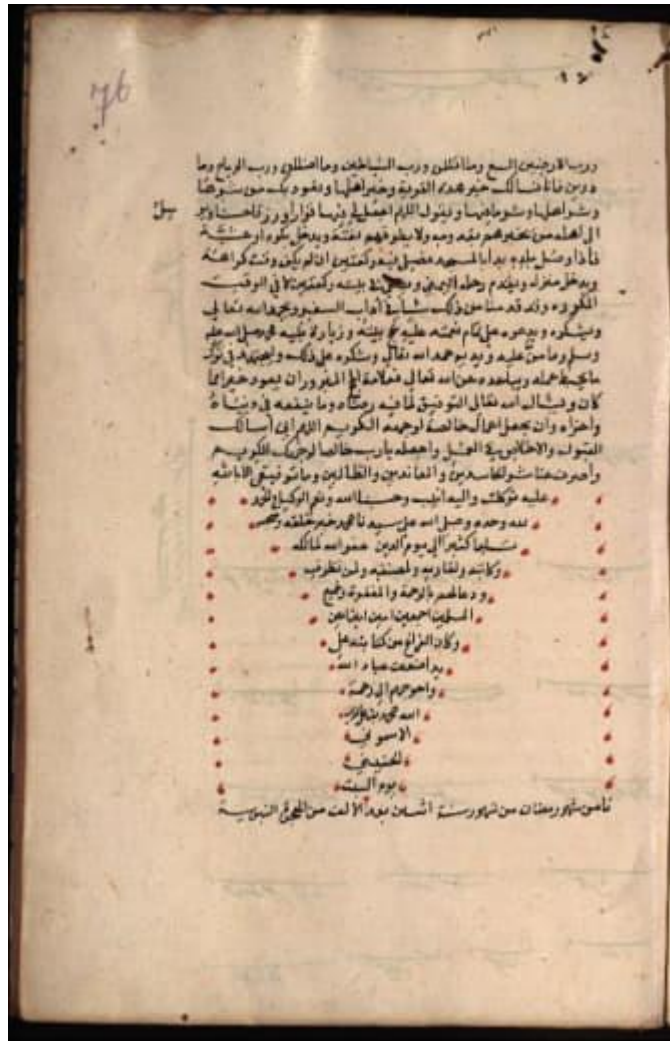 76
ورب الارضين السبع وما اقللن ورب الشياطين وما اضللن ورب الرياح وما
ذرين فانا نسالك خير هذه القرية وخير اهلها ونعوذ بك من شرها
وشر اهلها وشر ما فيها ويقول اللهم اجعل لي فيها قرارا ورزقا حسنا
الى اهله من يخبرهم بقدومه ولا يطرقهم بغتة ويدخل بكرة او عشية
فاذا وصل بلده بدا بالمسجد فصلى فيه ركعتين ان لم يكن وقت كراهة
ويدخل منزله ويقدم رجله اليمنى ويصلي في بيته ركعتين لا في الوقت
المكروه وقد قدمنا من ذلك شيا في آداب السفر ويحمد الله تعالى
ويشكره ويدعوه على تمام نعمته عليه بحج بيته وزيارة نبيه صلى الله عليه
وسلم وما من عليه ويديم حمد الله تعالى وشكره على ذلك ويجتهد في ترك
ما يحبط عمله ويباعده عن الله تعالى فعلامة الحج المبرور ان يعود خيرا مما
كان ونسال الله تعالى التوفيق لما فيه رضاه وما ينفعه في دنياه
واخراه وان يجعل اعمالي خالصة لوجهه الكريم اللهم اني أسالك
القبول والاخلاص في العمل واجعله يارب خالصا لوجهك الكريم
واصرف عنا شر الحاسدين والمعاندين والظالمين وما توفيقي الا بالله
عليه توكلت واليه انيب وحسبنا الله ونعم الوكيل والحمد
لله وحده وصلى الله على سيدنا محمد خير خلقه وصحبه
تسليما كثيرا الى يوم الدين غفر الله لمالكه
وكاتبه ولقاريه ولمصنفه ولمن نظر فيه
ودعا لهم بالرحمة والمغفرة ولجميع
المسلمين اجمعين امين امين امين
وكان الفراغ من كتابته على
يد اضعف عباد الله
واحوجهم الى رحمة
الله
يوم السبت
ثامن شهر رمضان من شهور سنة اثنين بعد الالف من الهجرة النبوية